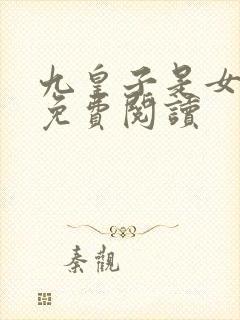 九皇子是女
免費閱讀
秦觀